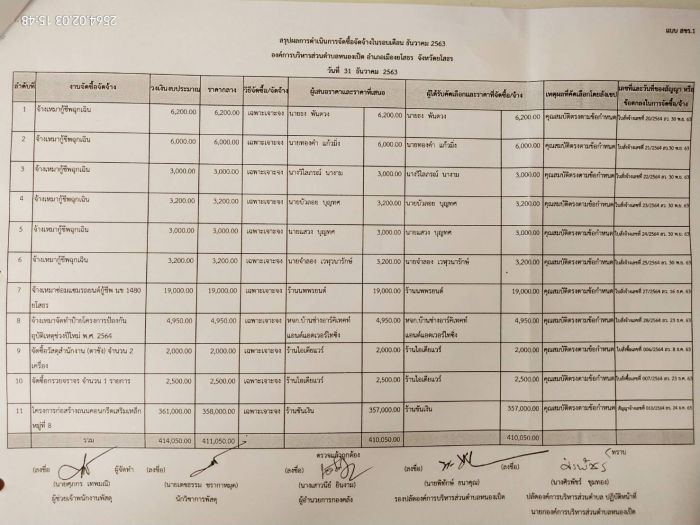 2564/02/03 15:48
แบบ สขร.1
สรุปผลการดำเนินการจัดซื้อจัดจ้างในรอบเดือน ธันวาคม 2563
องค์การบริหารส่วนตำบลหนองเป็ด อำเภอเมืองยโสธร จังหวัดยโสธร
วันที่ 31 ธันวาคม 2563
ลำดับที่ งานจัดซื้อจัดจ้าง วงเงินงบประมาณ ราคากลาง วิธีจัดซื้อ/จัดจ้าง ผู้เสนอราคาและราคาที่เสนอ ผู้ได้รับคัดเลือกและราคาที่จัดซื้อ/จ้าง เหตุผลที่คัดเลือกโดยสังเขป เลขที่และวันที่ของสัญญา หรือ
ข้อตกลงในการจัดซื้อ/จ้าง
1 จ้างเหมากู้ชีพฉุกเฉิน 6,200.00 6,200.00 เฉพาะเจาะจง นายธง พันดวง 6,200.00 นายธง พันดวง 6,200.00 คุณสมบัติตรงตามข้อกำหนด ใบสั่งจ้างเลขที่ 20/2564 ลว. 30 พ.ย. 63
2 จ้างเหมากู้ชีพฉุกเฉิน 6,000.00 6,000.00 เฉพาะเจาะจง นายทองคำ แก้วมิ่ง 6,000.00 นายทองคำ แก้วมิ่ง 6,000.00 คุณสมบัติตรงตามข้อกำหนด ใบสั่งจ้างเลขที่ 21/2564 ลว. 30 พ.ย. 63
3 จ้างเหมากู้ชีพฉุกเฉิน 3,000.00 3,000.00 เฉพาะเจาะจง นางวิไลภรณ์ นางาม 3,000.00 นางวิไลภรณ์ นางาม 3,000.00 คุณสมบัติตรงตามข้อกำหนด ใบสั่งจ้างเลขที่ 22/2564 ลว. 30 พ.ย. 63
4 จ้างเหมากู้ชีพฉุกเฉิน 3,200.00 3,200.00 เฉพาะเจาะจง นายบัวลอย บุญทศ 3,200.00 นายบัวลอย บุญทศ 3,200.00 คุณสมบัติตรงตามข้อกำหนด ใบสั่งจ้างเลขที่ 23/2564 ลว. 30 พ.ย. 63
5 จ้างเหมากู้ชีพฉุกเฉิน 3,000.00 3,000.00 เฉพาะเจาะจง นายแสวง บุญทศ 3,000.00 นายแสวง บุญทศ 3,000.00 คุณสมบัติตรงตามข้อกำหนด ใบสั่งจ้างเลขที่ 24/2564 ลว. 30 พ.ย. 63
6 จ้างเหมากู้ชีพฉุกเฉิน 3,200.00 3,200.00 เฉพาะเจาะจง นายจำลอง เวฬุวนารักษ์ 3,200.00 นายจำลอง เวฬุวนารักษ์ 3,200.00 คุณสมบัติตรงตามข้อกำหนด ใบสั่งจ้างเลขที่ 25/2564 ลว. 30 พ.ย. 63
7 จ้างเหมาซ่อมแซมรถยนต์กู้ชีพ นข 1480 19,000.00 19,000.00 เฉพาะเจาะจง ร้านนพพรยนต์ 19,000.00 ร้านนพพรยนต์ 19,000.00 คุณสมบัติตรงตามข้อกำหนด ใบสั่งจ้างเลขที่ 27/2564 ลว. 16 ธ.ค. 63
ยโสธร
8 จ้างเหมาจัดทำป้ายโครงการป้องกัน 4,950.00 4,950.00 เฉพาะเจาะจง หจก.บ้านช่างอาร์คิเทคท์ 4,950.00 หจก.บ้านช่างอาร์คิเทคท์ 4,950.00 คุณสมบัติตรงตามข้อกำหนด ใบสั่งจ้างเลขที่ 28/2564 ลว. 23 ธ.ค. 63
อุบัติเหตุช่วงปีใหม่ พ.ศ. 2564 แอนด์แอดเวอร์ไทซิ่ง แอนด์แอดเวอร์ไทซิ่ง
9 จัดซื้อวัสดุสำนักงาน (ตาชั่ง) จำนวน 2 2,000.00 2,000.00 เฉพาะเจาะจง ร้านไอเดียแวร์ 2,000.00 ร้านไอเดียแวร์ 2,000.00 คุณสมบัติตรงตามข้อกำหนด ใบสั่งซื้อเลขที่ 006/2564 ลว. 8 ธ.ค. 63
เครื่อง
10 จัดซื้อกรวยจราจร จำนวน 1 รายการ 2,500.00 2,500.00 เฉพาะเจาะจง ร้านไอเดียแวร์ 2,500.00 ร้านไอเดียแวร์ 2,500.00 คุณสมบัติตรงตามข้อกำหนด ใบสั่งซื้อเลขที่ 007/2564 ลว. 23 ธ.ค. 63
11 โครงการก่อสร้างถนนคอนกรีตเสริมเหล็ก 361,000.00 358,000.00 เฉพาะเจาะจง ร้านขันเงิน 357,000.00 ร้านขันเงิน 357,000.00 คุณสมบัติตรงตามข้อกำหนด สัญญาจ้างเลขที่ 010/2564 ลว. 24 ธ.ค. 63
หมู่ที่ 8
รวม 414,050.00 411,050.00 410,050.00 410,050.00
ตรวจแล้วถูกต้อง ทราบ
(ลงชื่อ) ผู้จัดทำ (ลงชื่อ) (ลงชื่อ) (ลงชื่อ) (ลงชื่อ)
(นายศุภกร เทพมณี) (นายเดชธรรม ชรากาหมุด) (นางเสาวนีย์ อินงาม) (นายพิทักษ์ ธนาคุณ) (นางศิรพัชร์ ชุมทอง)
ผู้ช่วยเจ้าพนักงานพัสดุ นักวิชาการพัสดุ ผู้อำนวยการกองคลัง รองปลัดองค์การบริหารส่วนตำบลหนองเป็ด ปลัดองค์การบริหารส่วนตำบล ปฏิบัติหน้าที่
นายกองค์การบริหารส่วนตำบลหนองเป็ด